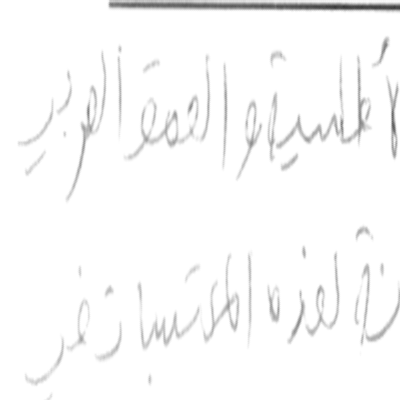 لأطلسية و القمة العربيـ
نة لهذه المكتسبات في